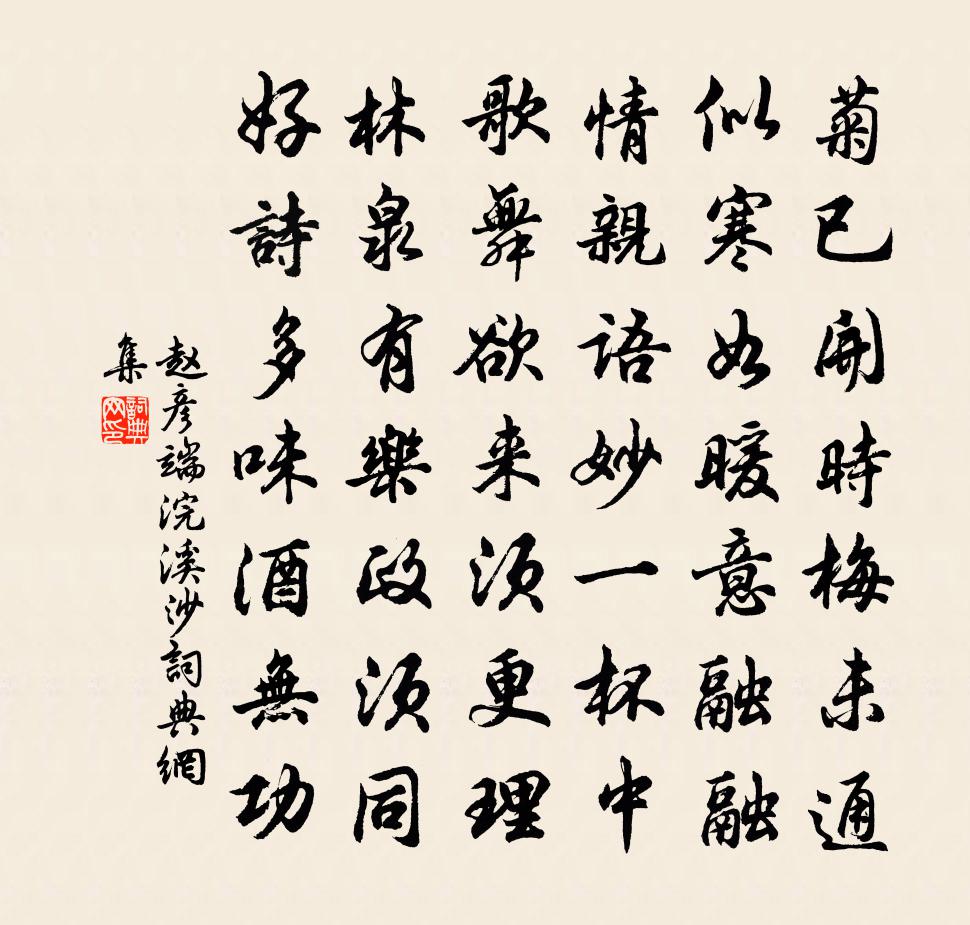 菊已開時梅未通
似寒如暖意融融
情親語妙一杯中
歌舞欲来須更理
林泉有樂政須同
好詩多味酒無功
赵彦端浣溪沙詞典網
集
詞典网印